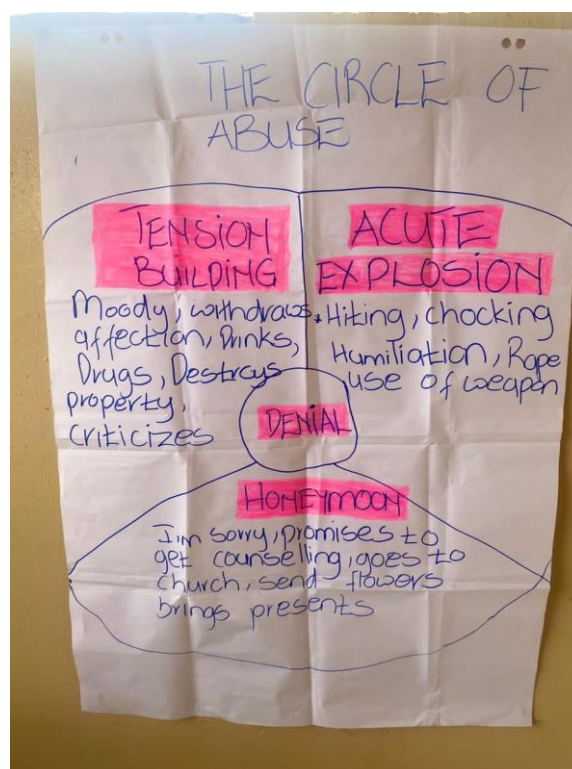 THE CIRCLE OF
ABUSE
TENSION
BUILDING
Moody, withdraws
affection, Drinks,
Drugs, Destroys
property,
criticizes
ACUTE
EXPLOSION
Hiting, chocking
Humiliation, Rape
use of weapon
DENIAL
HONEYMOON
I'm sorry, promises to
get counselling, goes to
church, send flowers
brings presents